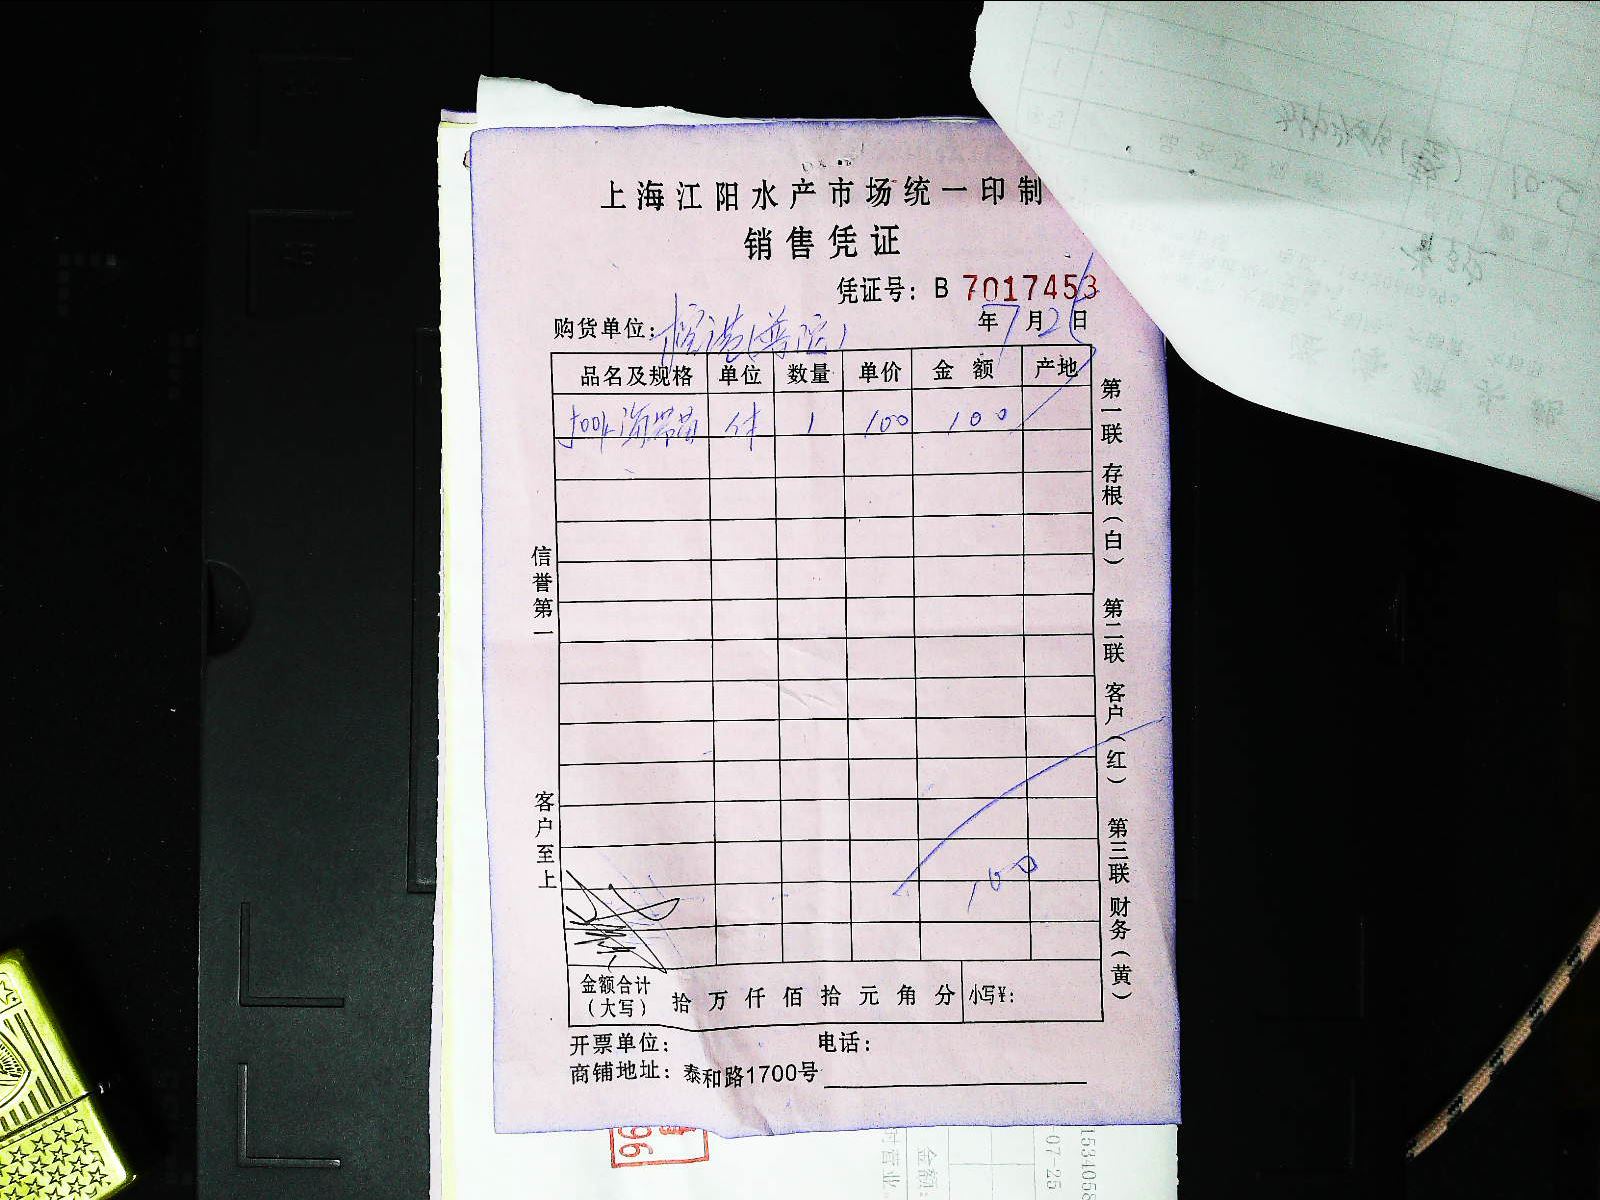 上海江阳水产市场统一印制
销售凭证
凭证号：B 7017453
购货单位： 年7月25日
品名及规格 单位 数量 单价 金额 产地
件 1 100 100
100
信誉第一
客户至上
第一联 存根（白） 第二联 客户（红） 第三联 财务（黄）
金额合计（大写） 拾 万 仟 佰 拾 元 角 分 小写¥：
开票单位： 电话：
商铺地址：泰和路1700号
96
金额：
-07-25
1534058